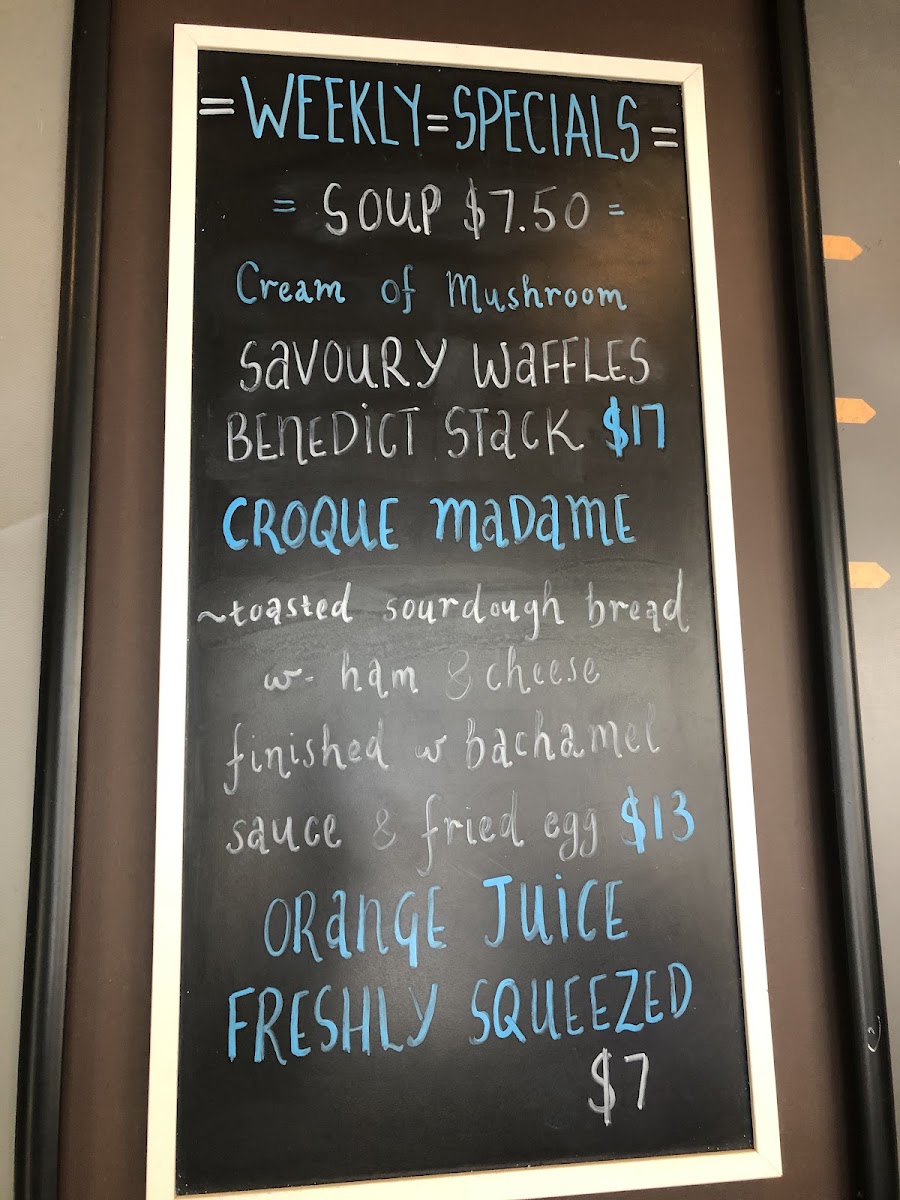 = WEEKLY = SPECIALS =
= SOUP $7.50 =
Cream of Mushroom
SAVOURY WAFFLES
BENEDICT STACK $17
CROQUE MADAME
~toasted sourdough bread
w- ham & cheese
finished w bachamel
sauce & fried egg $13
ORANGE JUICE
FRESHLY SQUEEZED
$7